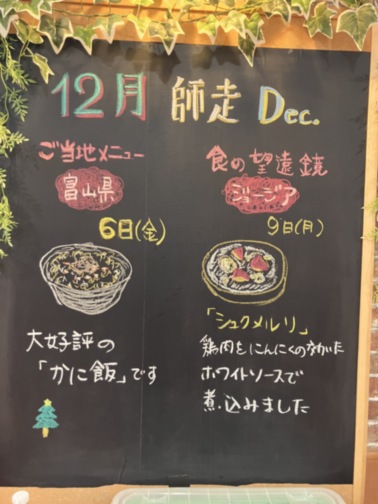 12月 師走 Dec.
ご当地メニュー
富山県
6日(金)
大好評の
「かに飯」です
食の望遠鏡
ジョージア
9日(月)
「シュクメルリ」
鶏肉をにんにくのきいた
ホワイトソースで
煮込みました